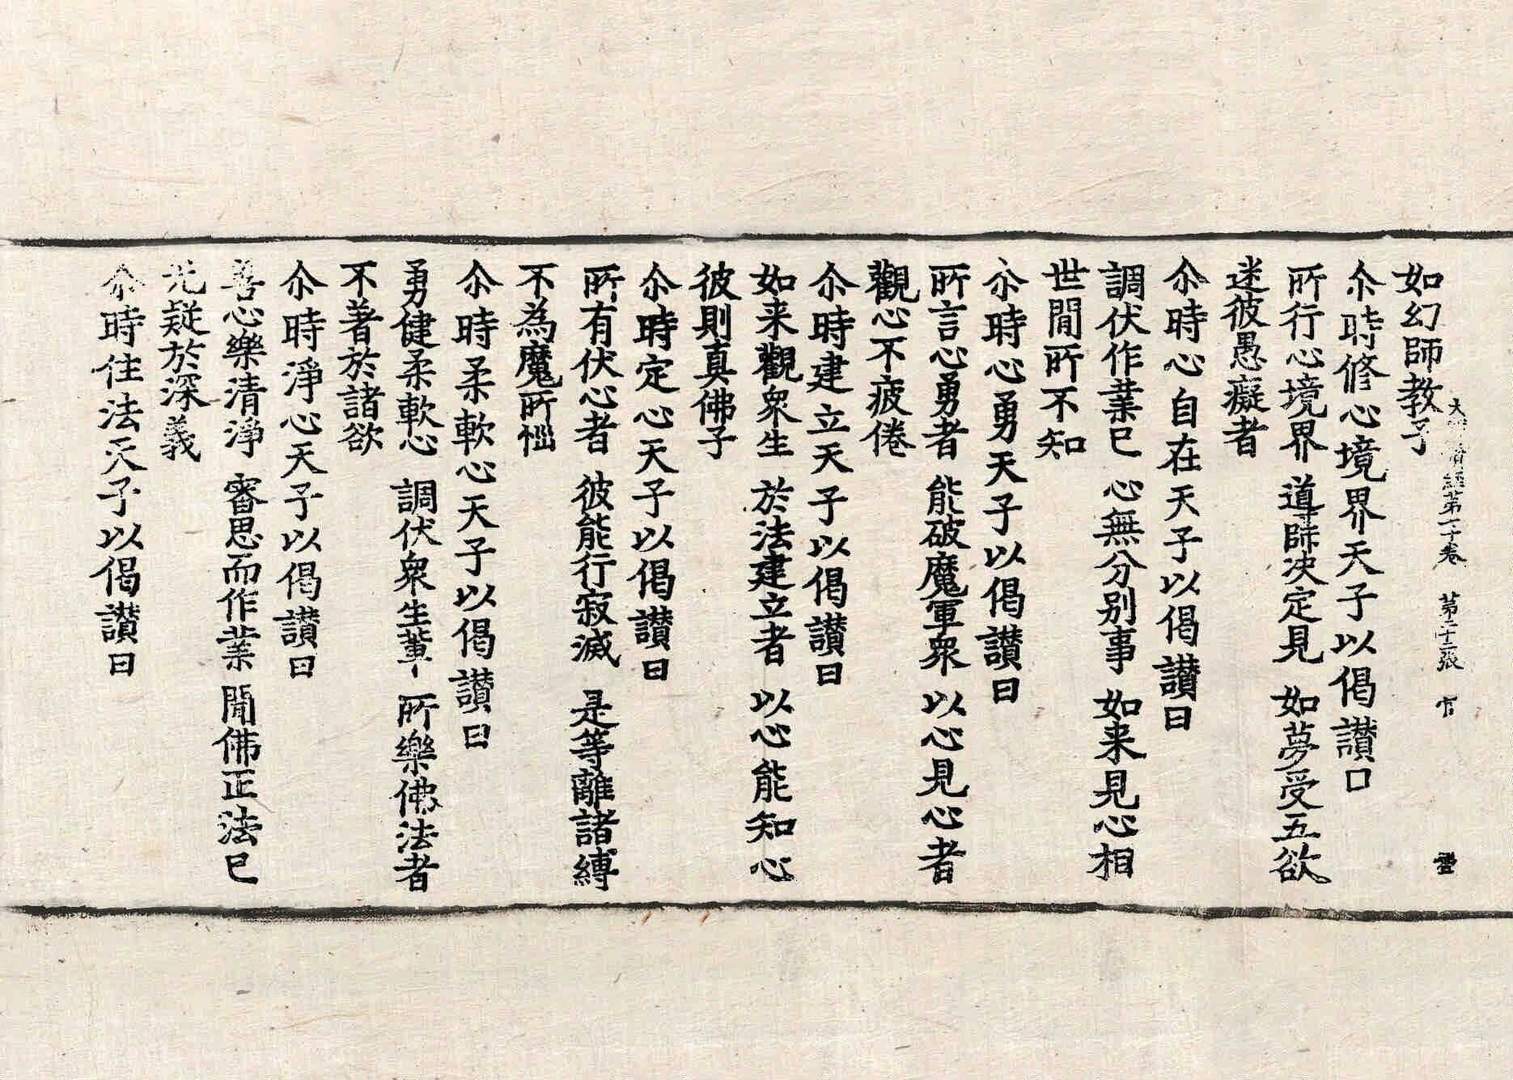 大寶積經第七十卷　第二十二張　官
如幻師教子
尒時修心境界天子以偈讃曰
所行心境界　導師决定見　如夢受五欲
迷彼愚癡者
尒時心自在天子以偈讃曰
調伏作業已　心無分別事　如来見心相
世間所不知
尒時心勇天子以偈讃曰
所言心勇者　能破魔軍衆　以心見心者
觀心不疲倦
尒時建立天子以偈讃曰
如来觀衆生　於法建立者　以心能知心
彼則真佛子
尒時定心天子以偈讃曰
所有伏心者　彼能行寂滅　是等離諸縛
不為魔所惱
尒時柔軟心天子以偈讃曰
勇健柔軟心　調伏衆生輩　所樂佛法者
不著於諸欲
尒時淨心天子以偈讃曰
善心樂清淨　審思而作業　聞佛正法已
无疑於深義
尒時住法天子以偈讃曰